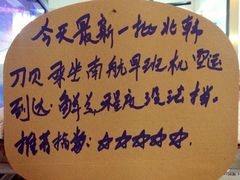 今天最新一批北韩
刀贝乘坐南航早班机空运
到达. 鲜美程度没法挡.
推荐指数: ☆☆☆☆☆.